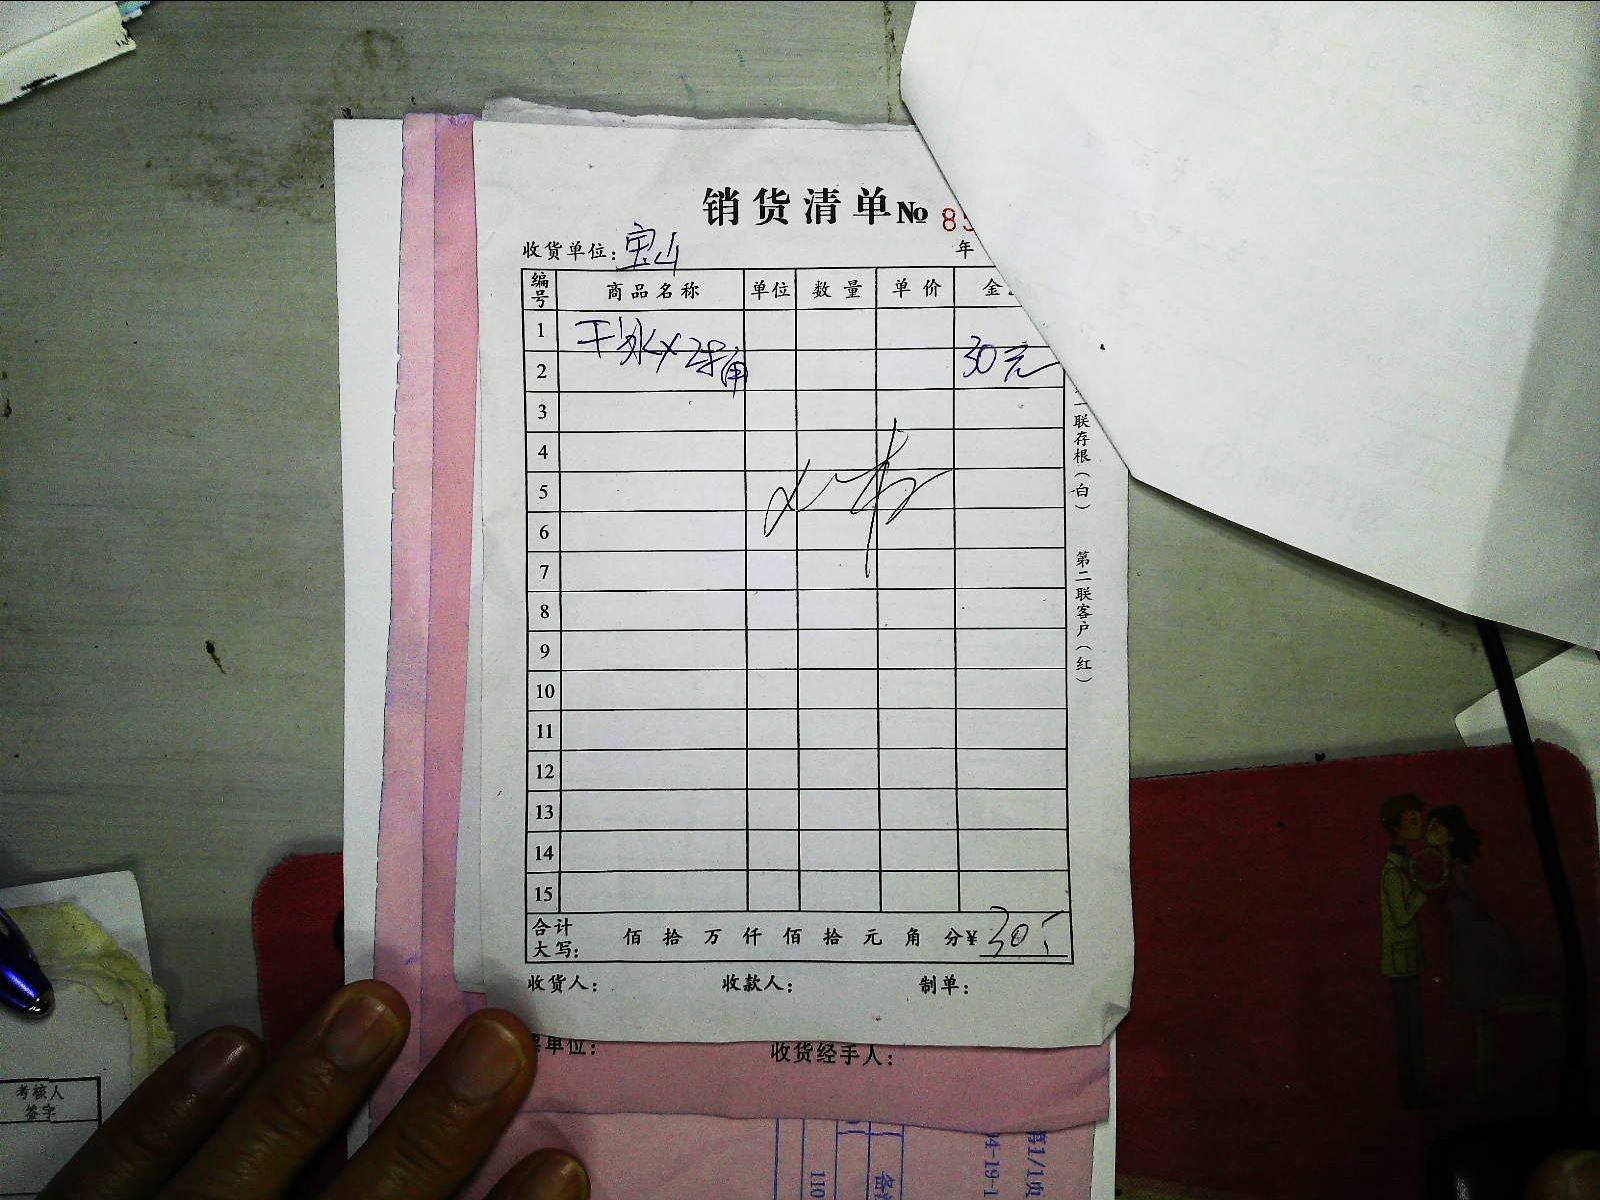 销货清单№ 85
收货单位：宝山
年
编号 商品名称 单位 数量 单价 金
1 干冰×2
2 30元
3
4
5
6
7
8
9
10
11
12
13
14
15
合计
大写： 佰 拾 万 仟 佰 拾 元 角 分¥ 30
收货人： 收款人： 制单：
一联存根（白） 第二联客户（红）
单位： 收货经手人：
考核人
签字
110
04-19-1
1/1页